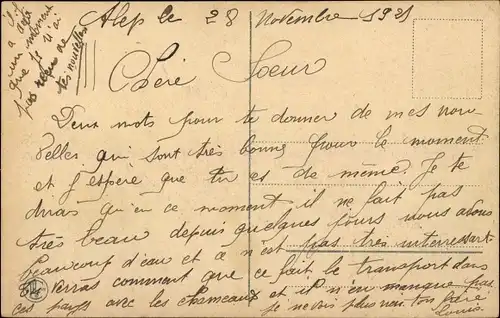 Alep le 28 Novembre 1921
il y a déjà
un moment
que je n'ai
pas reçu de
tes nouvelles
Chère Soeur
Deux mots pour te donner de mes nou
velles qui sont très bonne pour le moment
et j'espère que tu es de même Je te
dirais qu'en ce moment il ne fait pas
très beau depuis quelques jours nous avons
beaucoup d'eau et ça n'est pas très interressart
Tu verras comment que ce fait le transport dans
ces pays avec les chameaux et il n'en manque pas
Je ne vois plus rien ton frère
Louis